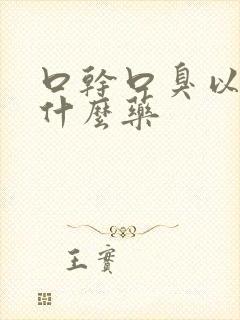 口幹口臭以
什麼藥
王實